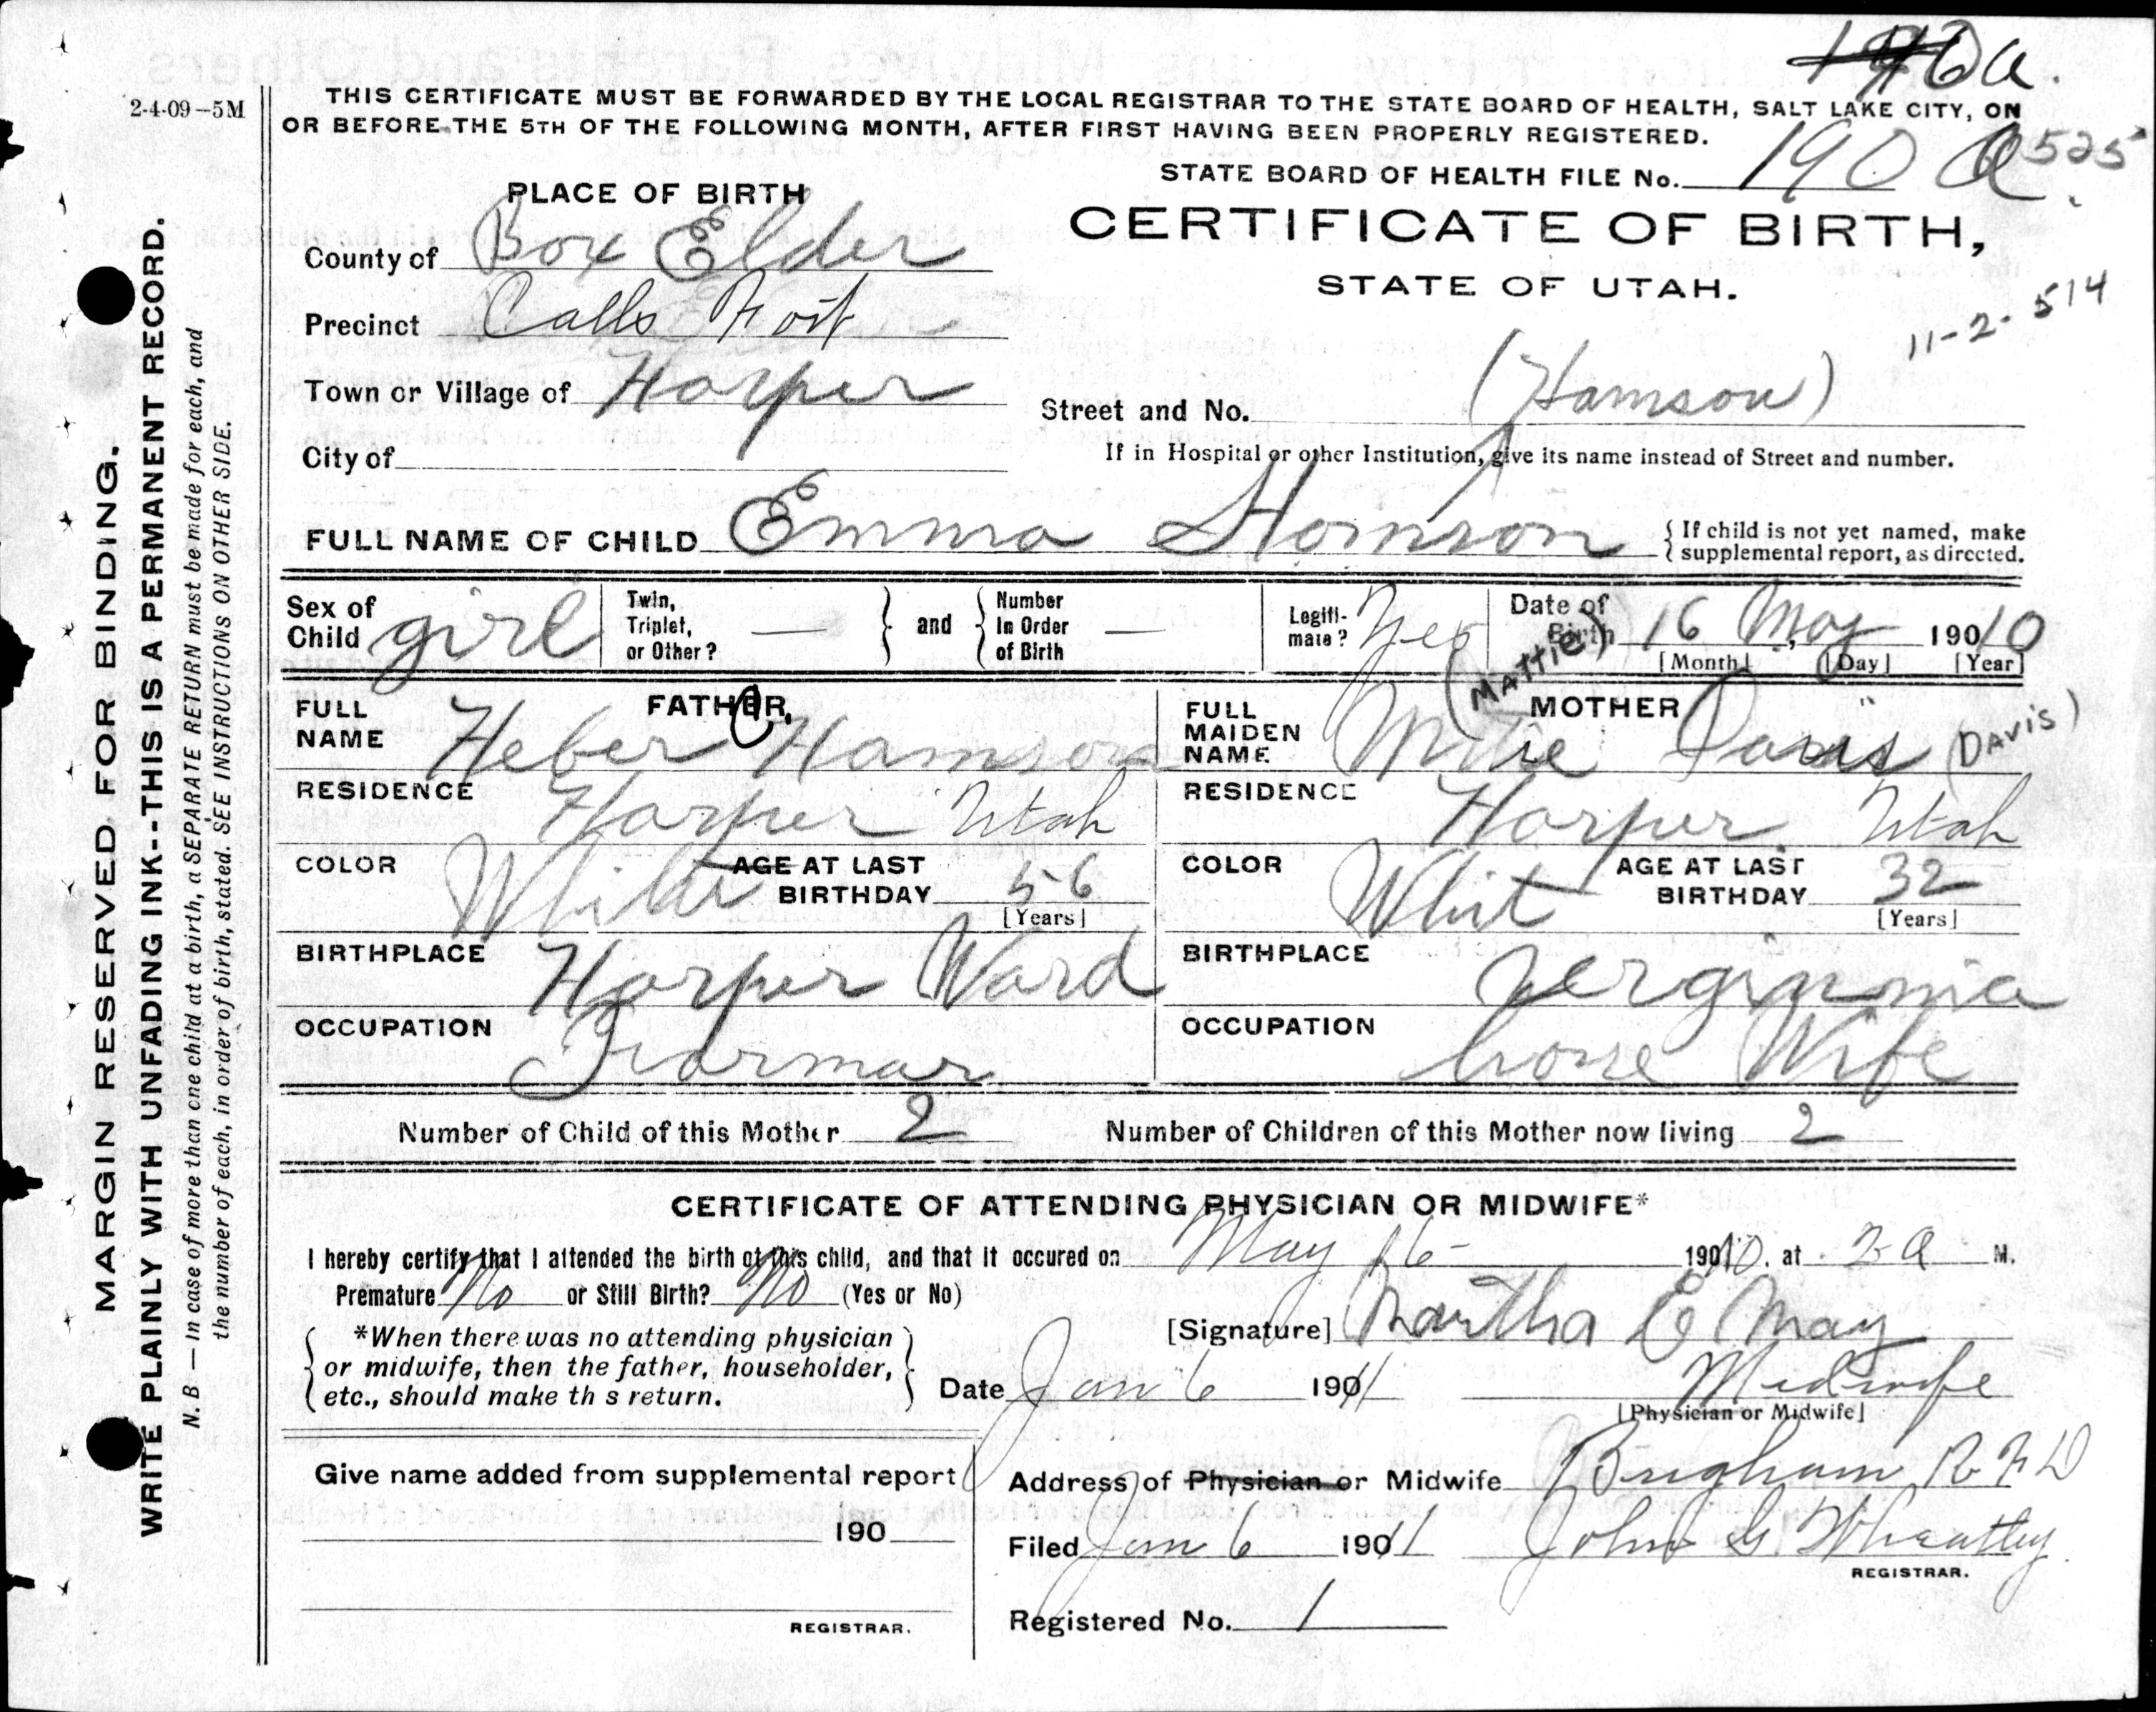 146 a.
2-4-09-5M
THIS CERTIFICATE MUST BE FORWARDED BY THE LOCAL REGISTRAR TO THE STATE BOARD OF HEALTH, SALT LAKE CITY, ON
OR BEFORE THE 5TH OF THE FOLLOWING MONTH, AFTER FIRST HAVING BEEN PROPERLY REGISTERED.
STATE BOARD OF HEALTH FILE No. 190 a 525
CERTIFICATE OF BIRTH,
STATE OF UTAH.
11-2-514
PLACE OF BIRTH
County of Box Elder
Precinct Calls Fort
Town or Village of Harper
City of
Street and No. (Hamson)
If in Hospital or other Institution, give its name instead of Street and number.
FULL NAME OF CHILD Emma Homson { If child is not yet named, make
{ supplemental report, as directed.
Sex of Child girl
Twin, Triplet, or Other? — } and { Number In Order of Birth —
Legiti-mate? Yes
Date of Birth 16 May, 190/10
[Month] [Day] [Year]
FATHER,
FULL NAME Heber Hamson
RESIDENCE Harper Utah
COLOR White AGE AT LAST BIRTHDAY 56
[Years]
BIRTHPLACE Harper Ward
OCCUPATION Farmar
(MATTIE)
MOTHER
FULL MAIDEN NAME Mttie Davis (DAVIS)
RESIDENCE Harper Utah
COLOR Whit AGE AT LAST BIRTHDAY 32
[Years]
BIRTHPLACE Verginnia
OCCUPATION house Wife
Number of Child of this Mother 2 Number of Children of this Mother now living 2
CERTIFICATE OF ATTENDING PHYSICIAN OR MIDWIFE*
I hereby certify that I attended the birth of this child, and that it occured on May 16- 1910. at 2 a M.
Premature No or Still Birth? No (Yes or No)
*When there was no attending physician
or midwife, then the father, householder,
etc., should make th s return.
[Signature] Martha E May
Date Jan 6 1911 Midwife
[Physician or Midwife]
Give name added from supplemental report
190
REGISTRAR.
Address of Physician or Midwife Brigham R F D
Filed Jan 6 1911 John G. Wheatley
REGISTRAR.
Registered No. 1
MARGIN RESERVED FOR BINDING.
WRITE PLAINLY WITH UNFADING INK--THIS IS A PERMANENT RECORD.
N. B — In case of more than one child at a birth, a SEPARATE RETURN must be made for each, and
the number of each, in order of birth, stated. SEE INSTRUCTIONS ON OTHER SIDE.